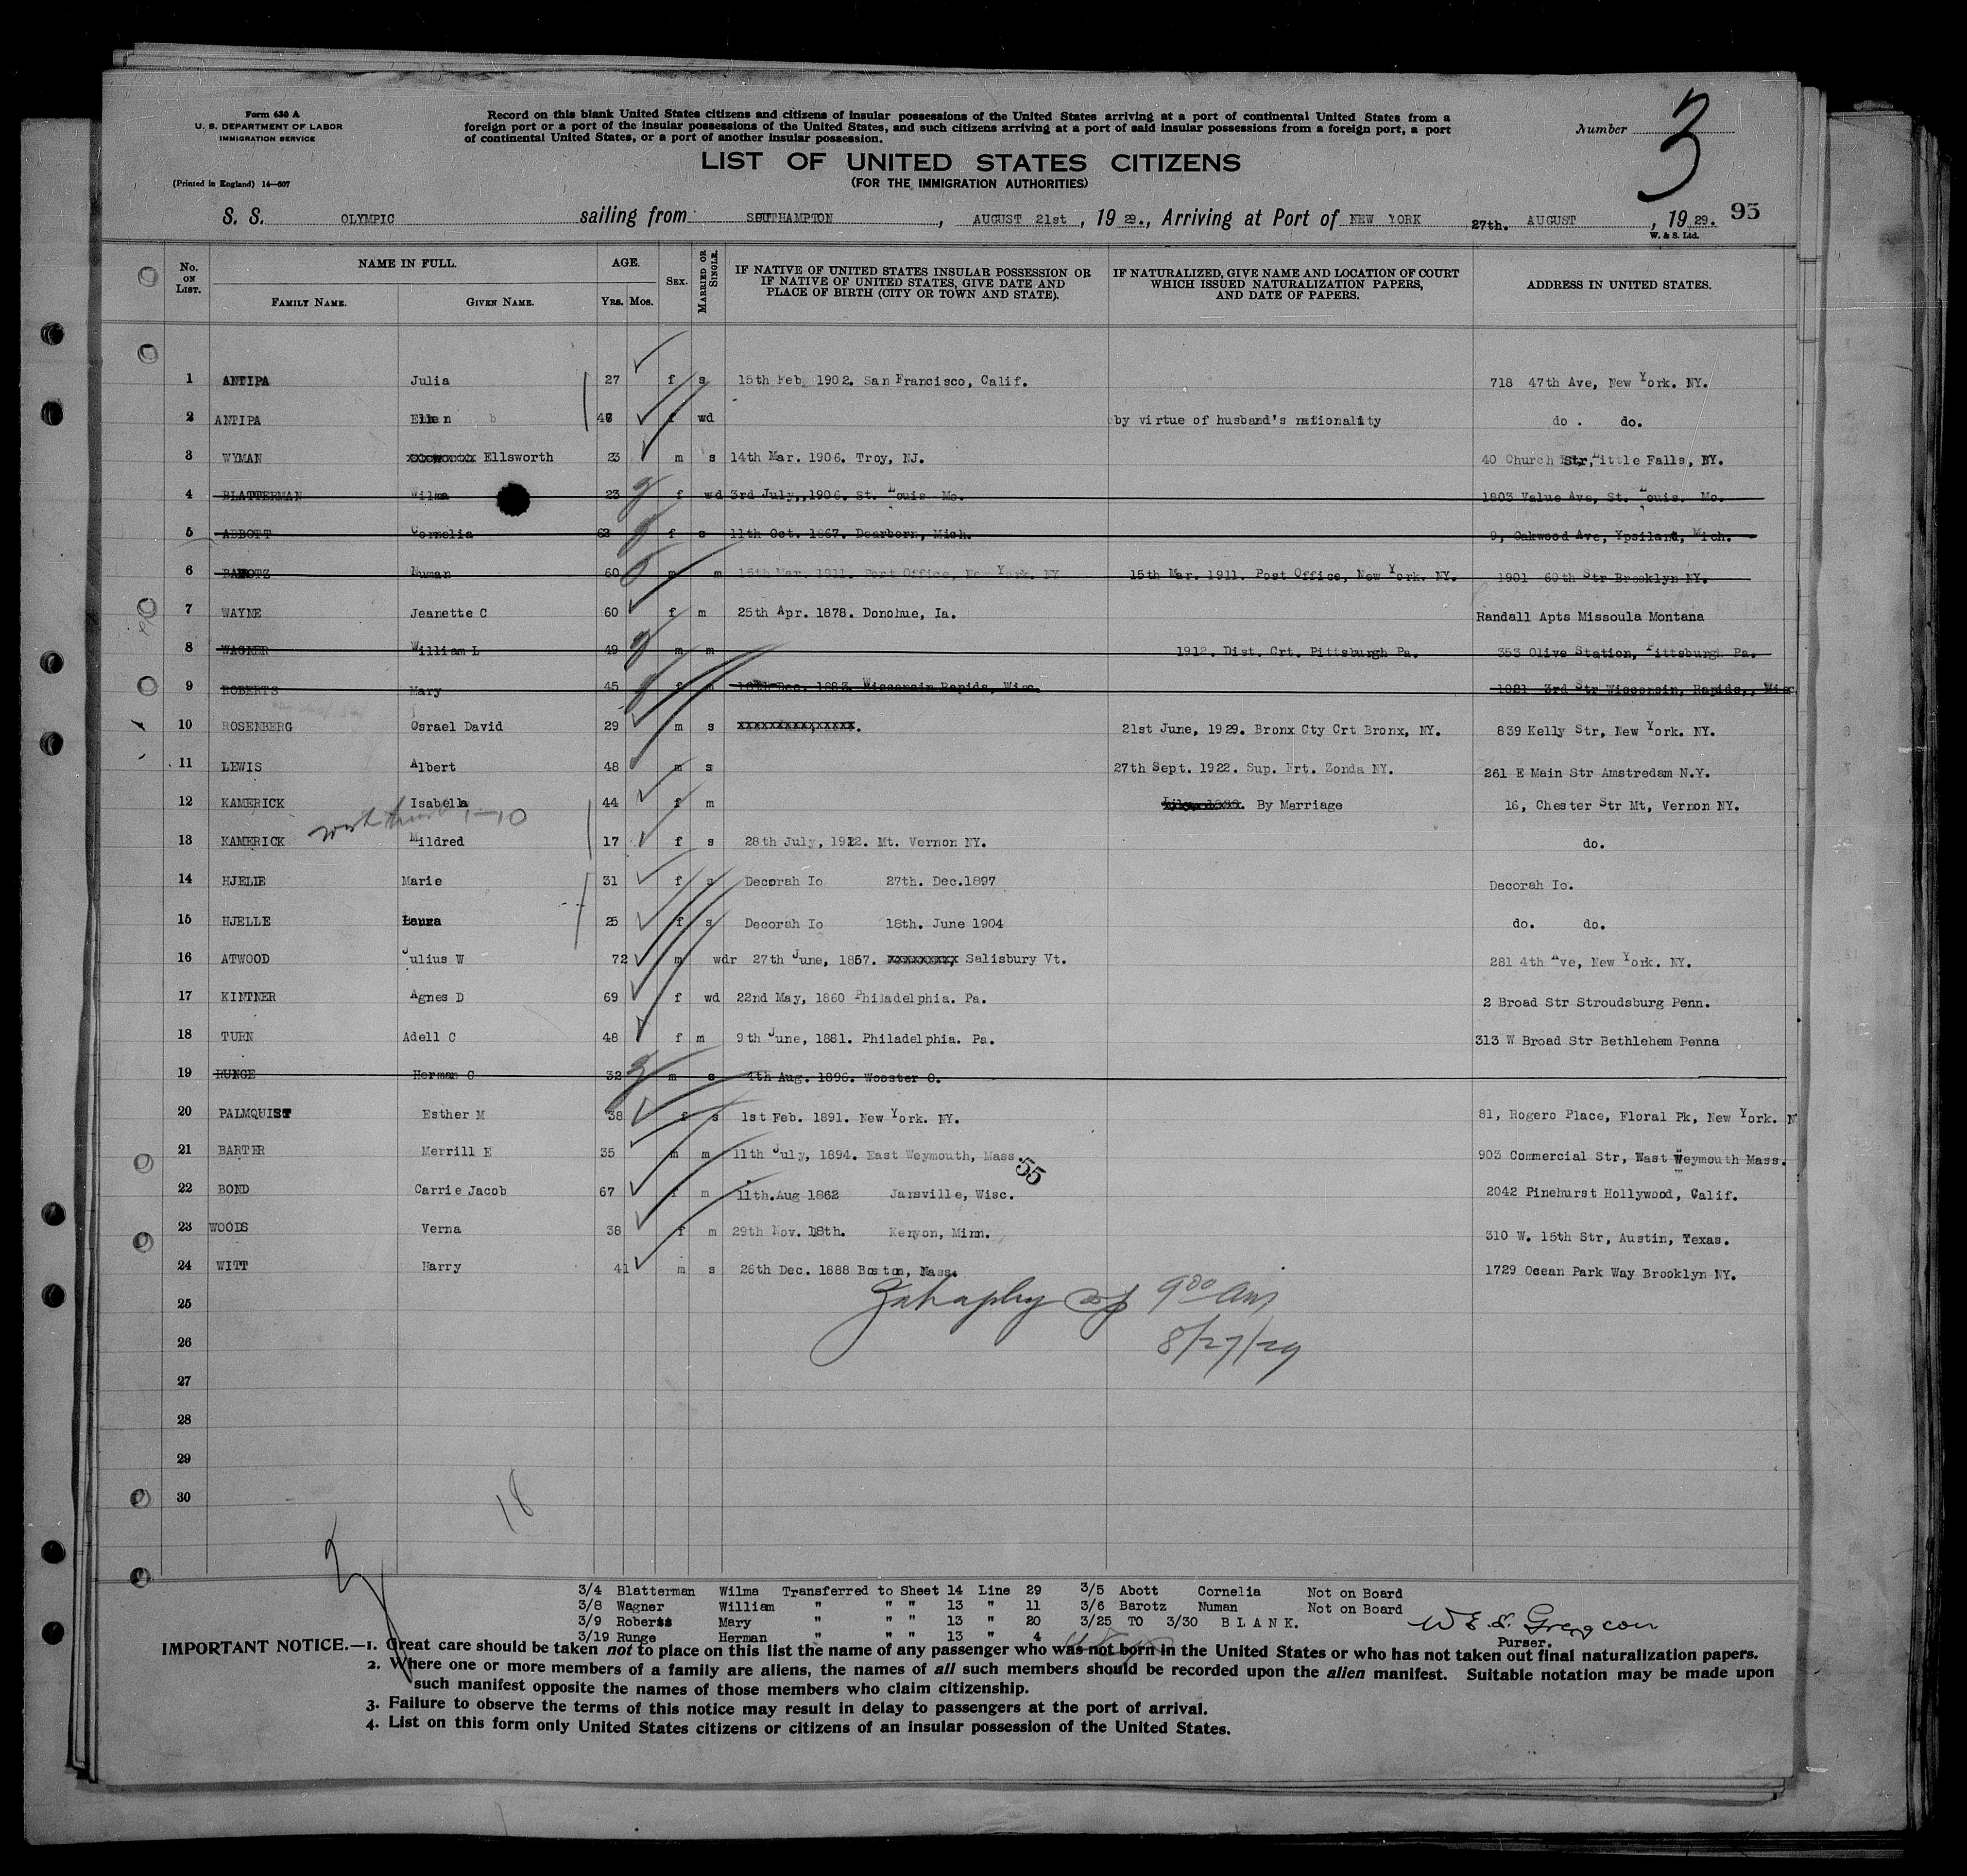 Form 630 A
U. S. DEPARTMENT OF LABOR
IMMIGRATION SERVICE
(Printed in England) 14—607
Record on this blank United States citizens and citizens of insular possessions of the United States arriving at a port of continental United States from a
foreign port or a port of the insular possessions of the United States, and such citizens arriving at a port of said insular possessions from a foreign port, a port
of continental United States, or a port of another insular possession.
Number 3
LIST OF UNITED STATES CITIZENS
(FOR THE IMMIGRATION AUTHORITIES)
S. S. OLYMPIC sailing from SOUTHAMPTON, AUGUST 21st, 19 29., Arriving at Port of NEW YORK 27th. AUGUST, 19 29. 95
W. & S. Ltd.
No. ON LIST. NAME IN FULL. FAMILY NAME. GIVEN NAME. AGE. YRS. MOS. SEX. MARRIED OR SINGLE. IF NATIVE OF UNITED STATES INSULAR POSSESSION OR IF NATIVE OF UNITED STATES, GIVE DATE AND PLACE OF BIRTH (CITY OR TOWN AND STATE). IF NATURALIZED, GIVE NAME AND LOCATION OF COURT WHICH ISSUED NATURALIZATION PAPERS, AND DATE OF PAPERS. ADDRESS IN UNITED STATES.
1 ANTIPA Julia 27 f s 15th Feb, 1902. San Francisco, Calif. 718 47th Ave, New York. NY.
2 ANTIPA Ellen b f wd by virtue of husband's nationality do . do.
3 WYMAN Ellsworth 23 m s 14th Mar. 1906. Troy, NJ. 40 Church Str, Little Falls, NY.
4 BLATTERMAN Wilma 23 f wd 3rd July,,1906. St. Louis Mo. 1803 Value Ave, St. Louis. Mo.
5 ABBOTT Cornelia 62 f s 11th Oct. 1867. Dearborn, Mich. 9, Oakwood Ave, Ypsiland, Mich.
6 BAROTZ Numan 60 m m 15th Mar. 1911. Post Office, New York. NY 15th Mar. 1911. Post Office, New York. NY. 1901 60th Str Brooklyn NY.
7 WAYNE Jeanette C 60 f m 25th Apr. 1878. Donohue, Ia. Randall Apts Missoula Montana
8 WAGNER William L 49 m m 1912. Dist. Crt. Pittsburgh Pa. 353 Olive Station, Pittsburgh Pa.
9 ROBERTS Mary 45 f m Dec. 1883. Wisconsin Rapids, Wisc. 1021 3rd Str Wisconsin, Rapids,, Wisc
10 ROSENBERG Osrael David 29 m s xxxxxxxxx,xxxxx. 21st June, 1929. Bronx Cty Crt Bronx, NY. 839 Kelly Str, New York. NY.
11 LEWIS Albert 48 m s 27th Sept. 1922. Sup. Crt. Zonda NY. 261 E Main Str Amstredam N.Y.
12 KAMERICK Isabella 44 f m By Marriage 16, Chester Str Mt, Vernon NY.
13 KAMERICK Mildred 17 f s 28th July, 1912. Mt. Vernon NY. do.
14 HJELLE Marie 31 f s Decorah Io 27th. Dec.1897 Decorah Io.
15 HJELLE Laura 25 f s Decorah Io 18th. June 1904 do. do.
16 ATWOOD Julius W 72 m wdr 27th June, 1857. xxxxxxxxx, Salisbury Vt. 281 4th Ave, New York. NY.
17 KINTNER Agnes D 69 f wd 22nd May, 1860 Philadelphia. Pa. 2 Broad Str Stroudsburg Penn.
18 TURN Adell C 48 f m 9th June, 1881. Philadelphia. Pa. 313 W Broad Str Bethlehem Penna
19 RUNGE Herman C 32 m s 4th Aug. 1896. Wooster O.
20 PALMQUIST Esther M 38 f s 1st Feb. 1891. New York. NY. 81, Rogero Place, Floral Pk, New York. N
21 BARTER Merrill E 35 m m 11th July, 1894. East Weymouth, Mass. 903 Commercial Str, East Weymouth Mass.
55
22 BOND Carrie Jacob 67 f m 11th.Aug 1862 Jansville, Wisc. 2042 Pinehurst Hollywood, Calif.
23 WOODS Verna 38 f m 29th Nov. 18th. Kenyon, Minn. 310 W. 15th Str, Austin, Texas.
24 WITT Harry 41 m s 26th Dec. 1888 Boston, Mass. 1729 Ocean Park Way Brooklyn NY.
25 9 00 am
26 8/27/29
27
28
29
30
18
3/4 Blatterman Wilma Transferred to Sheet 14 Line 29 3/5 Abott Cornelia Not on Board
3/8 Wagner William " " " 13 " 11 3/6 Barotz Numan Not on Board
3/9 Roberts Mary " " " 13 " 20 3/25 TO 3/30 B L A N K.
3/19 Runge Herman " " " 13 " 4
Purser.
IMPORTANT NOTICE.—1. Great care should be taken not to place on this list the name of any passenger who was not born in the United States or who has not taken out final naturalization papers.
2. Where one or more members of a family are aliens, the names of all such members should be recorded upon the alien manifest. Suitable notation may be made upon
such manifest opposite the names of those members who claim citizenship.
3. Failure to observe the terms of this notice may result in delay to passengers at the port of arrival.
4. List on this form only United States citizens or citizens of an insular possession of the United States.